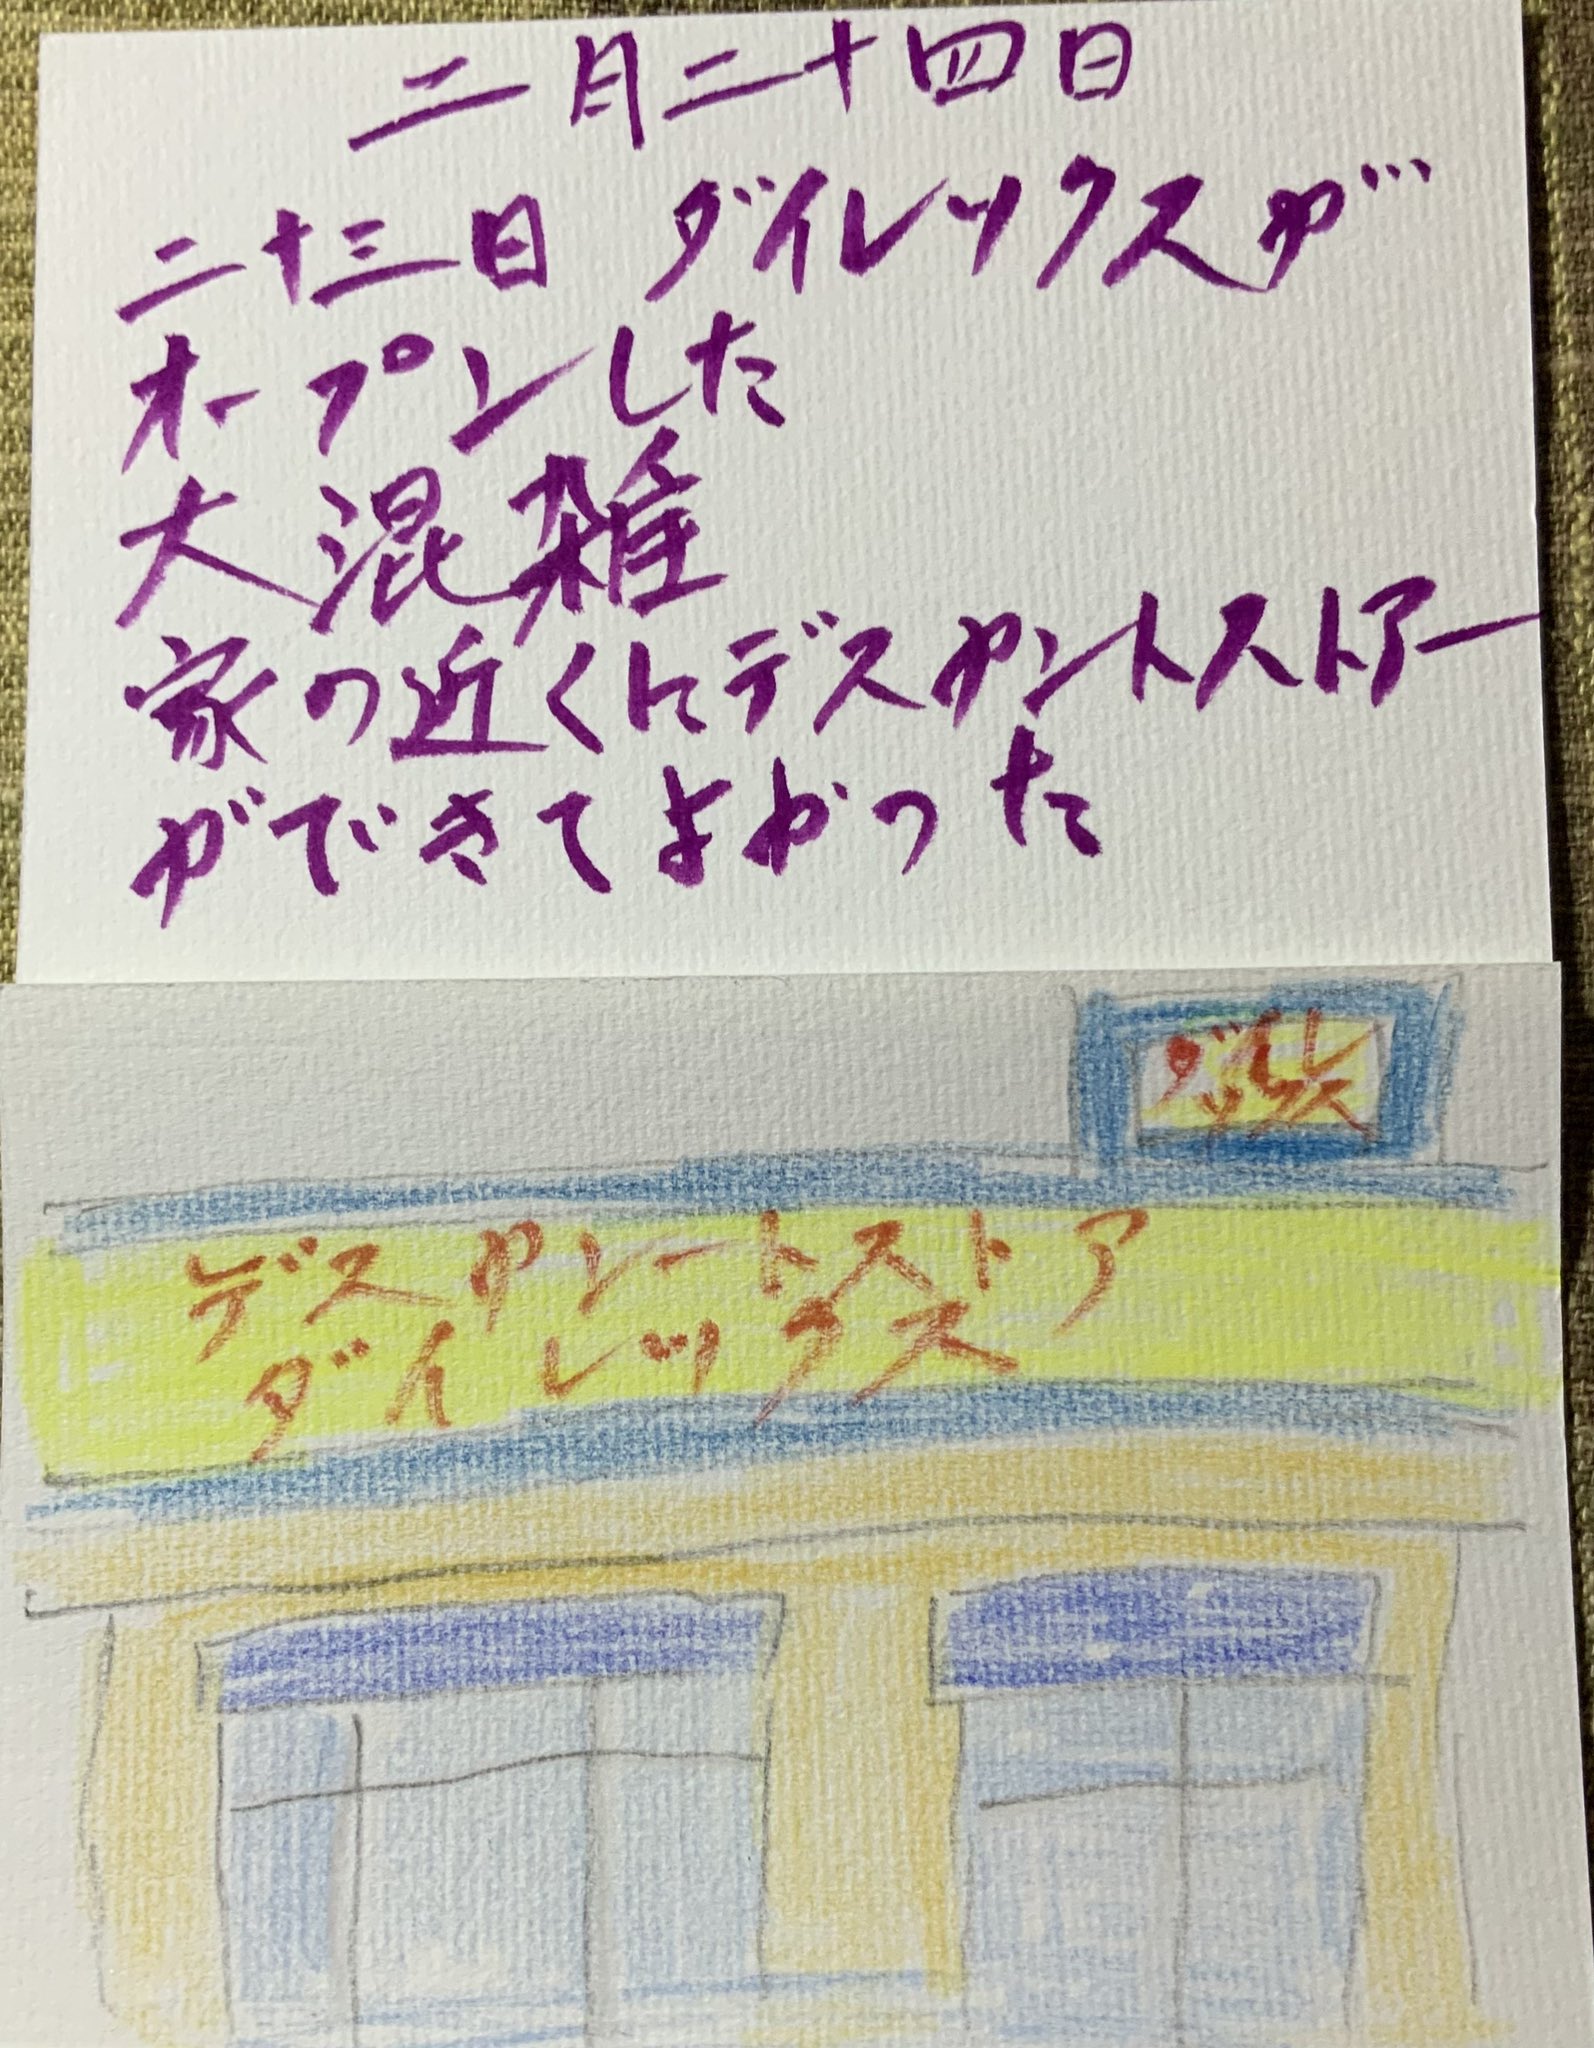 二月二十四日
二十三日 ダイレックスが
オープンした
大混雑
家の近くにデスカントストアー
ができてよかった
ダイレ
ックス
デスカントストア
ダイレックス